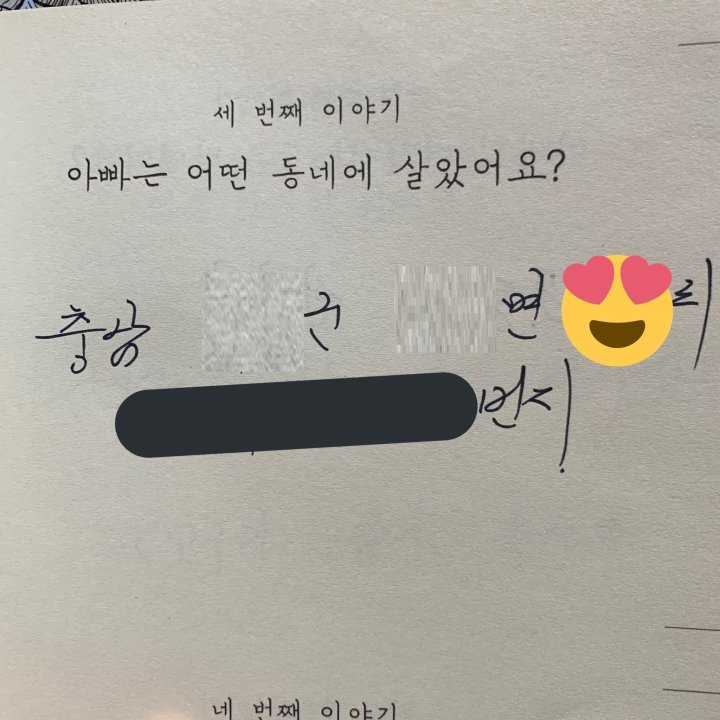 세 번째 이야기
아빠는 어떤 동네에 살았어요?
충남 군 면 리
번지
네 번째 이야기